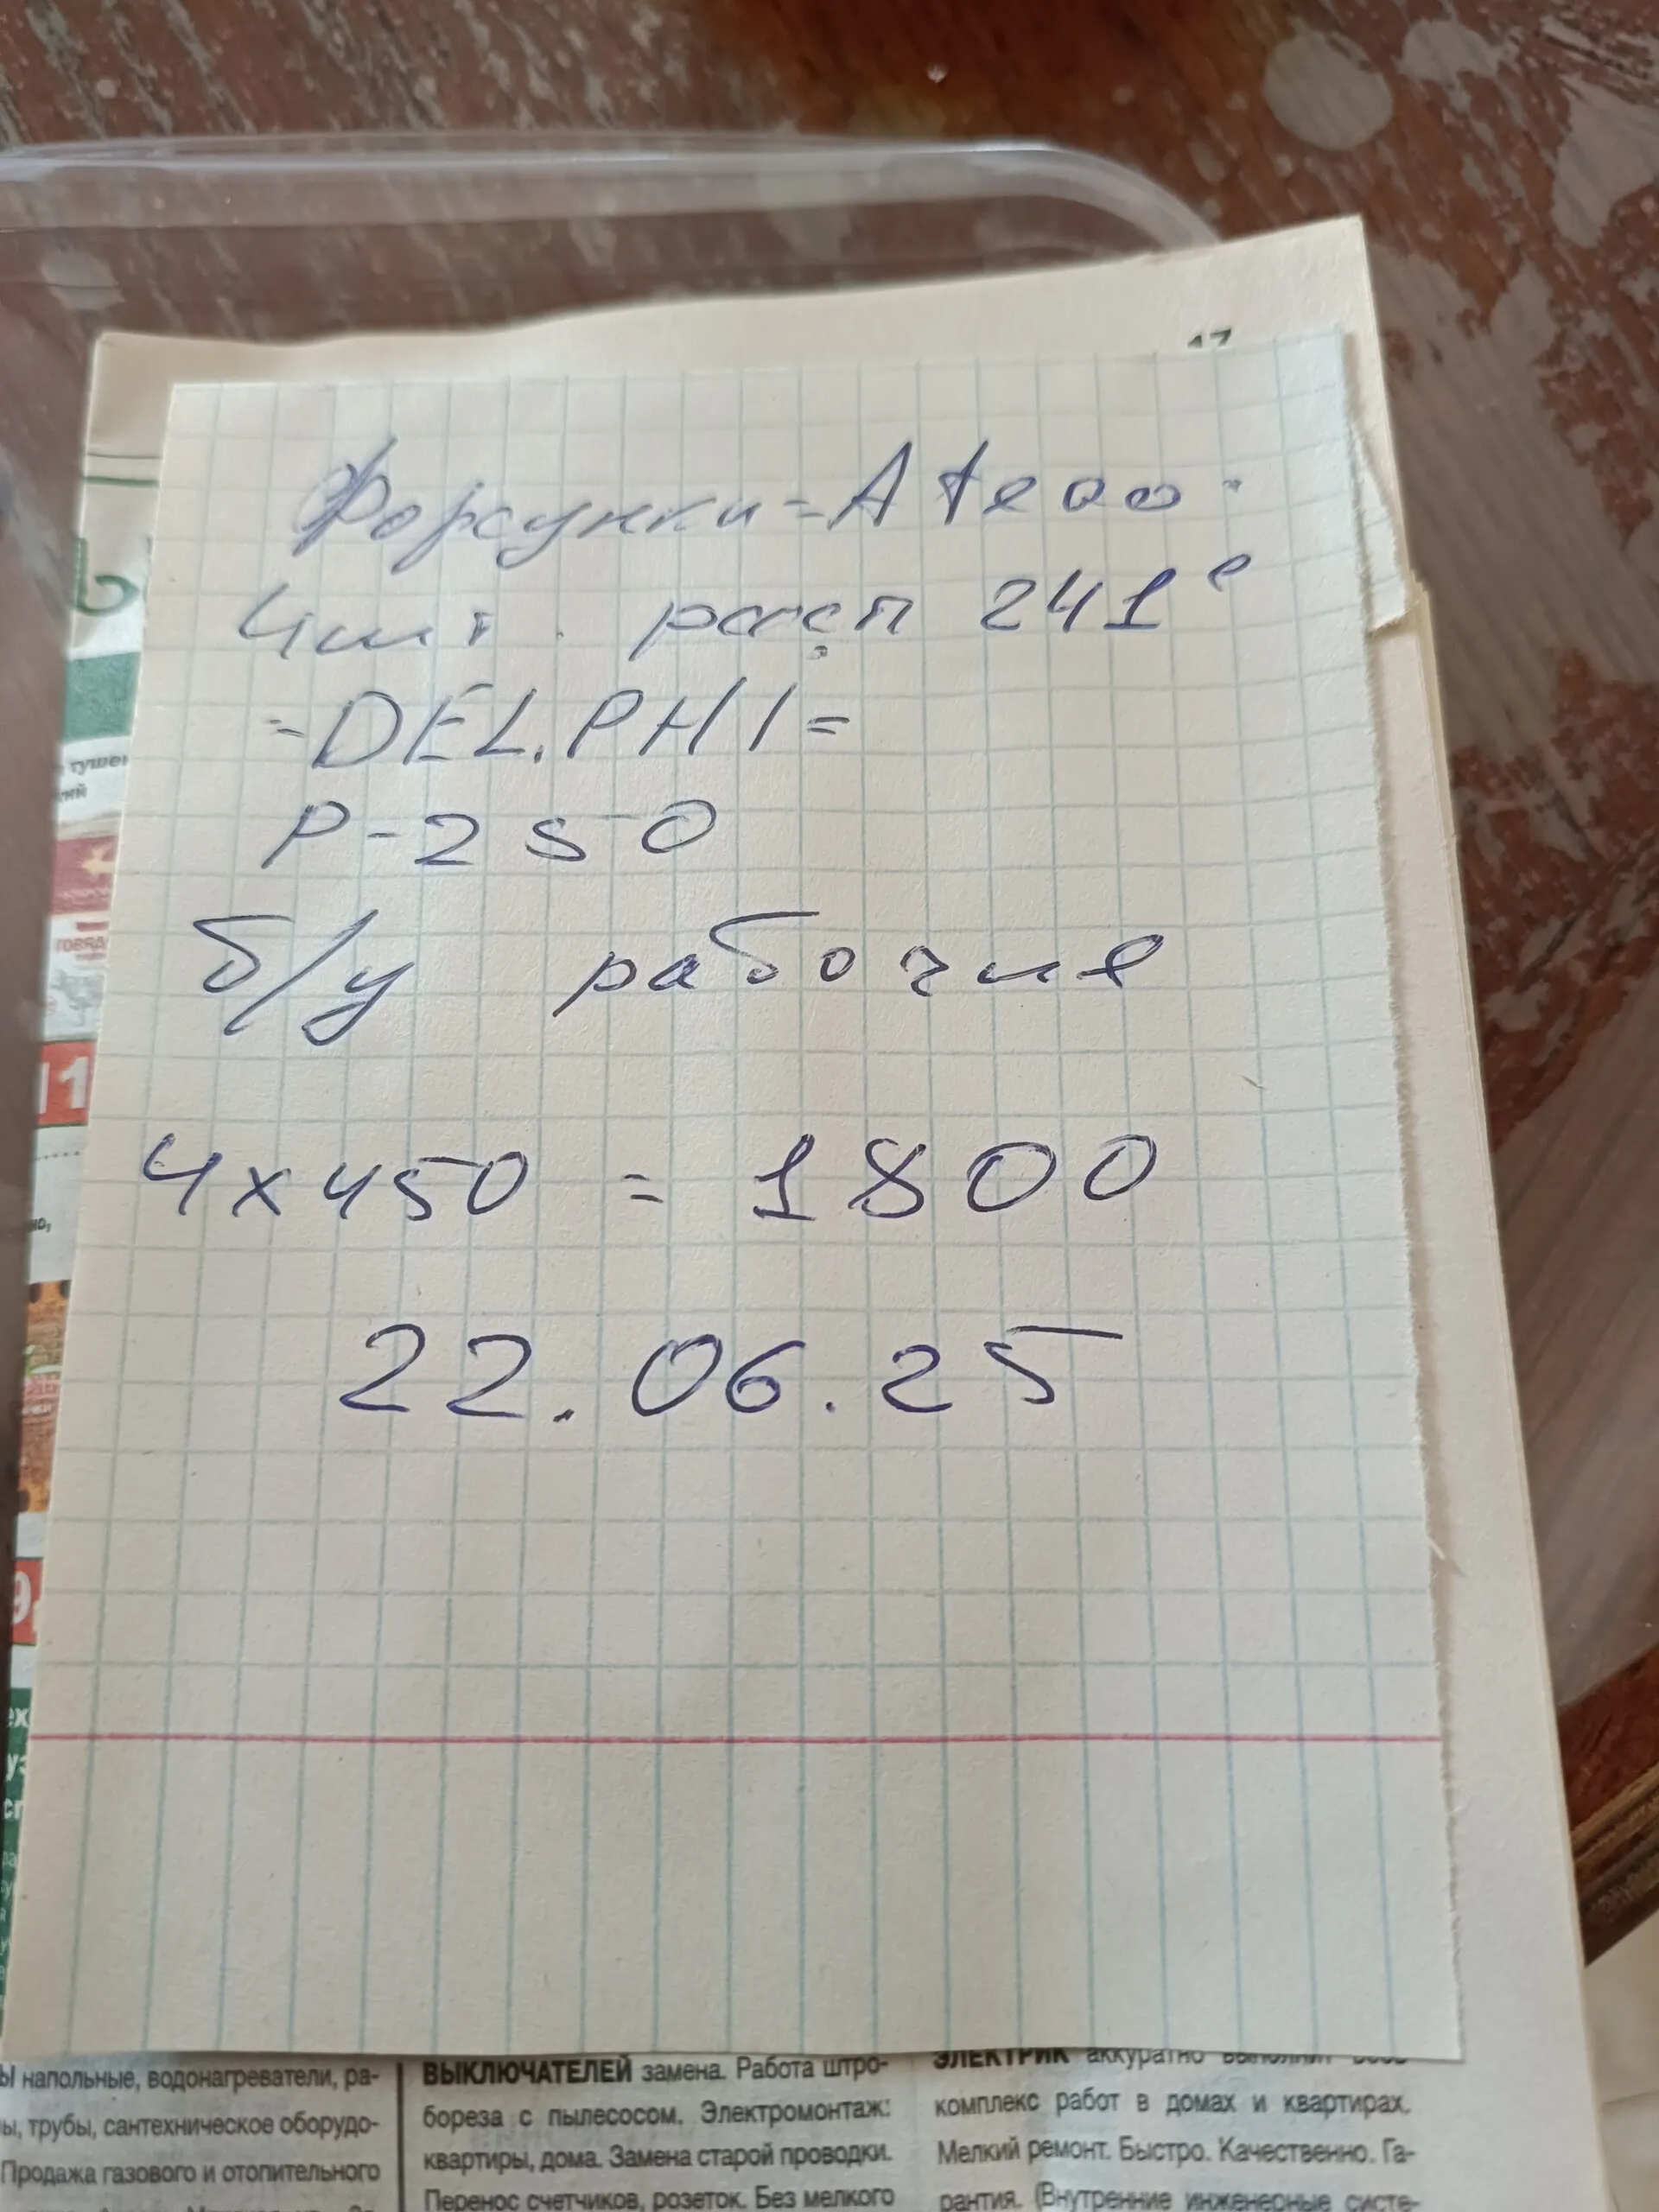 17
Форсунки = Ateco.
4шт. расп 241е
=DEL.PHI=
P-250
б/у рабочие
4x450 = 1800
22.06.25
тушен
кий
11
9
ы напольные, водонагреватели, ра-
ы, трубы, сантехническое оборудо-
Продажа газового и отопительного
ВЫКЛЮЧАТЕЛЕЙ замена. Работа штро-
бореза с пылесосом. Электромонтаж:
квартиры, дома. Замена старой проводки.
Перенос счетчиков, розеток. Без мелкого
ЭЛЕКТРИК аккуратно выполнит весь
комплекс работ в домах и квартирах.
Мелкий ремонт. Быстро. Качественно. Га-
рантия. (Внутренние инженерные систе-